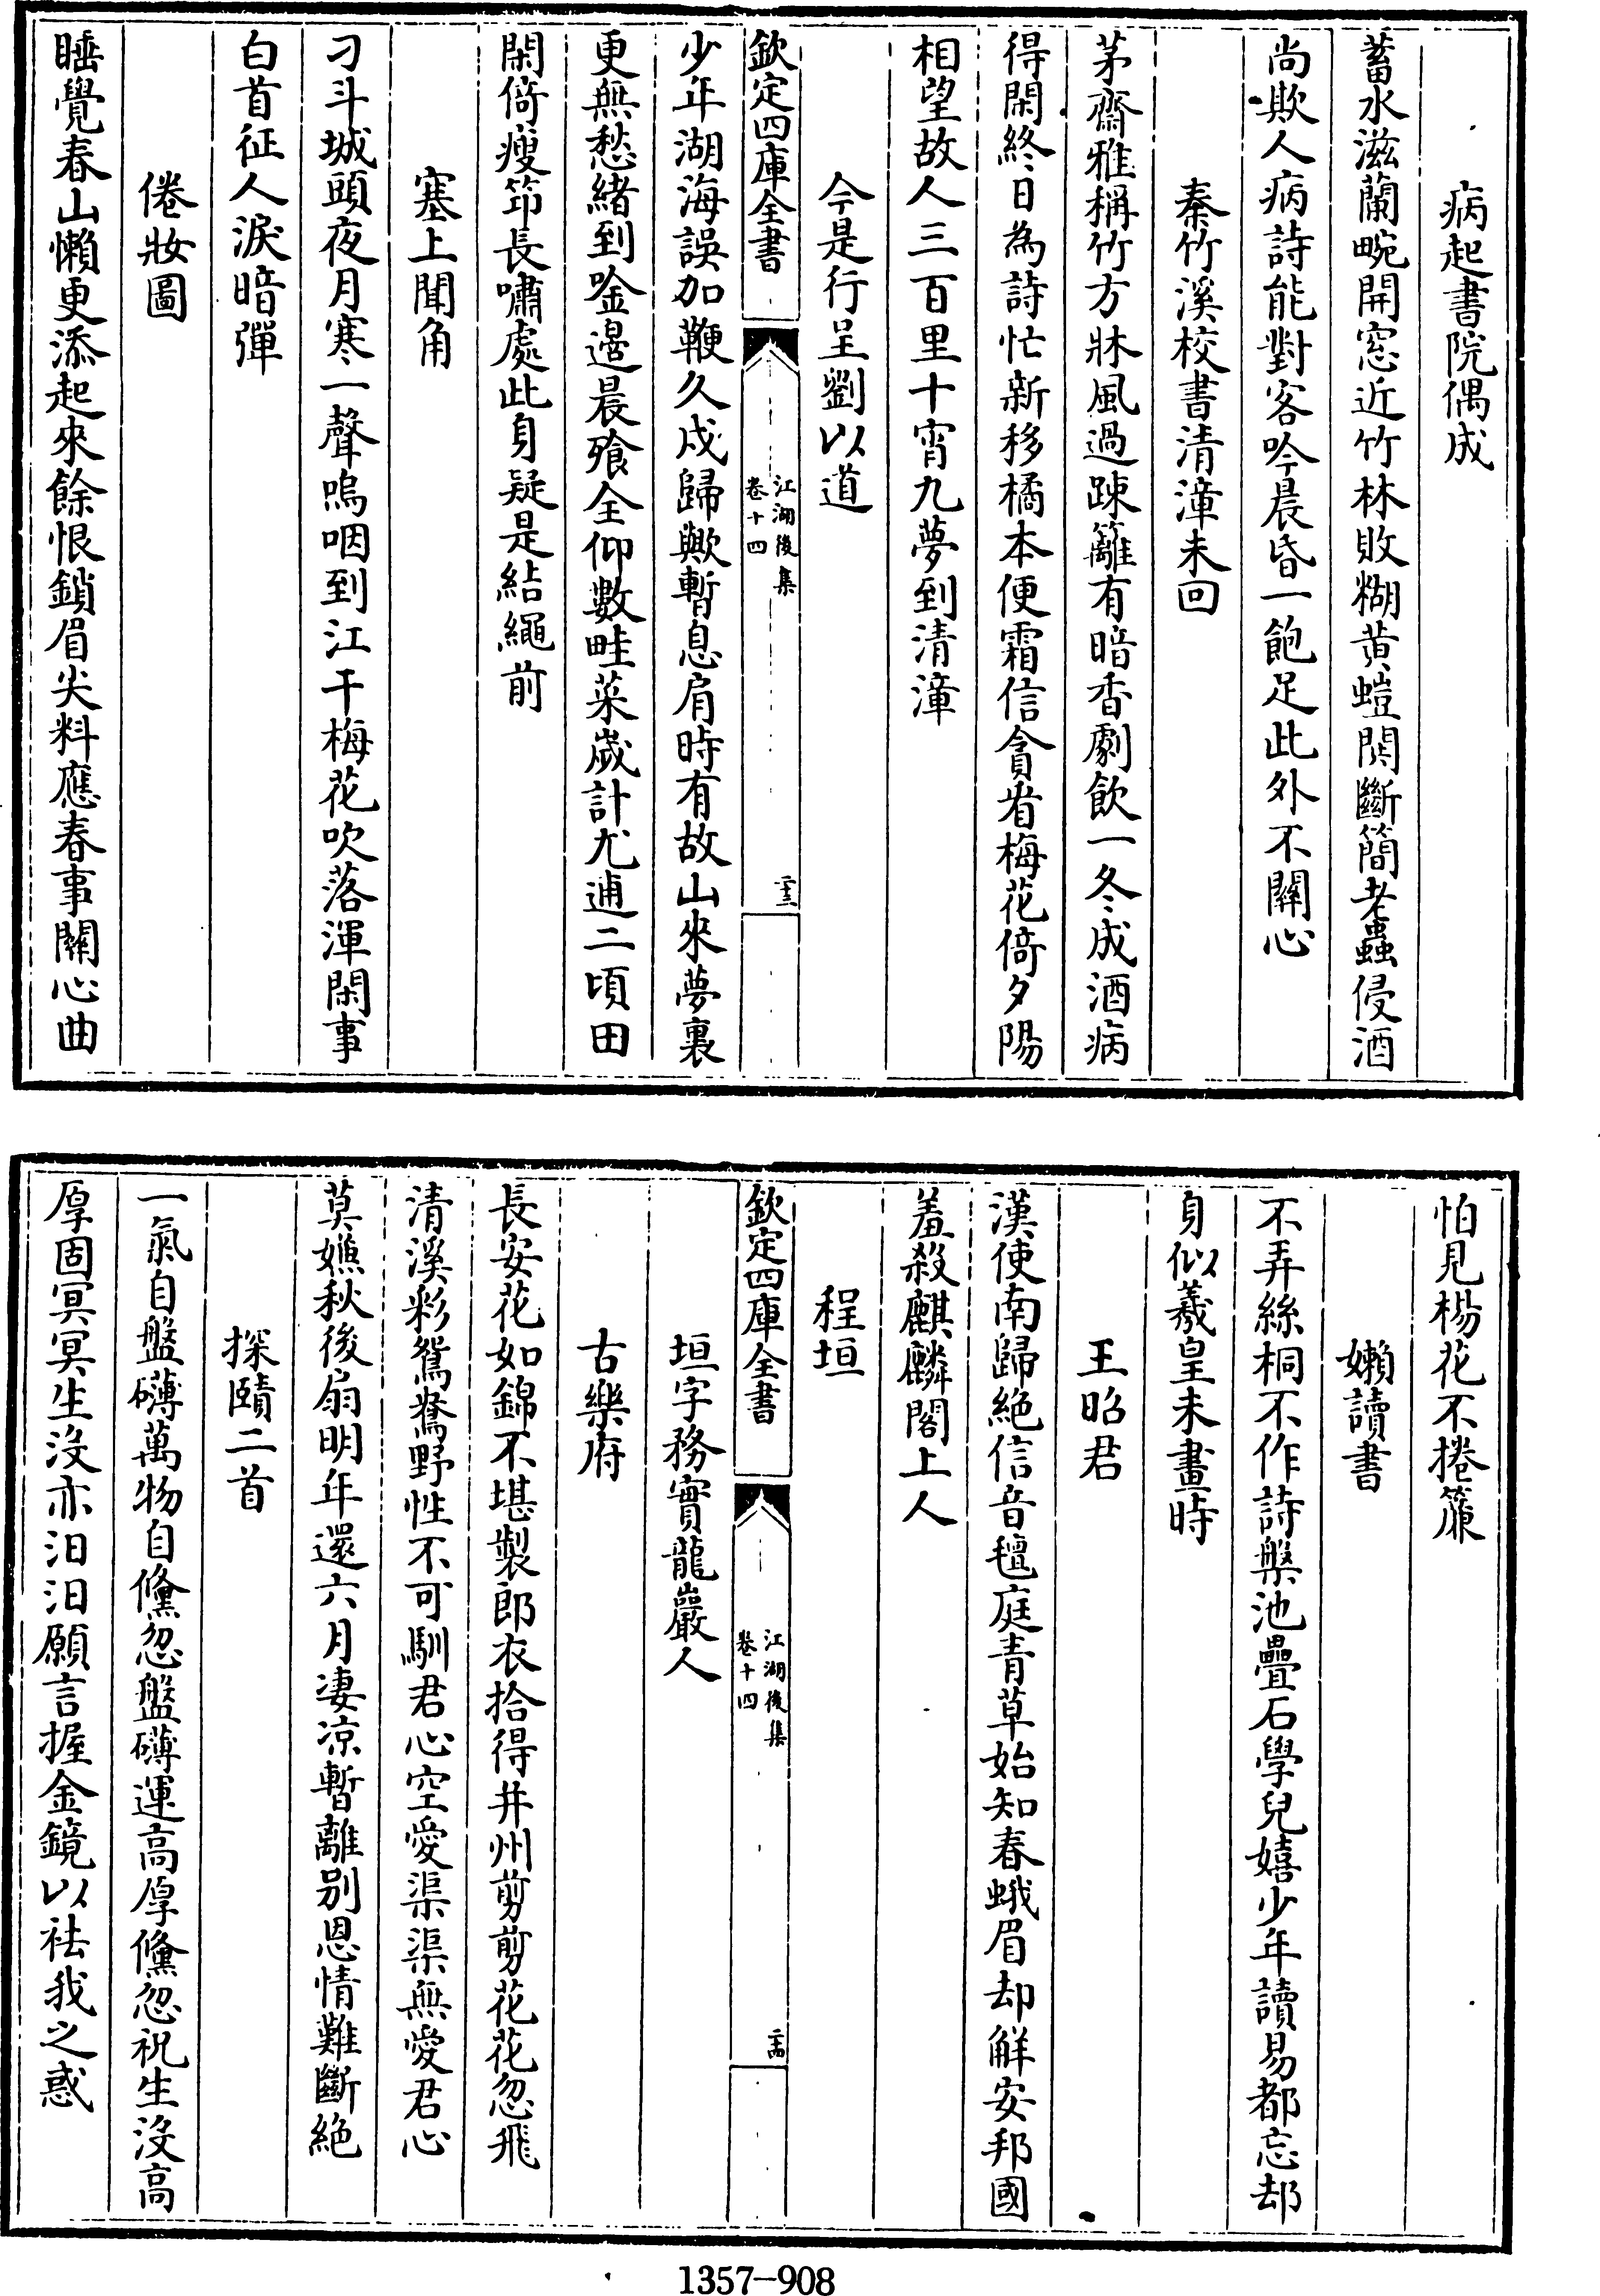 病起書院偶成
蓄水滋蘭畹開窓近竹林敗糊黄螘閧斷簡老蟲侵酒
尚欺人病詩能對客吟晨昏一飽足此外不關心
秦竹溪校書清漳未回
茅齋雅稱竹方牀風過踈籬有暗香劇飲一冬成酒病
得閑終日為詩忙新移橘本便霜信貪看梅花倚夕陽
相望故人三百里十宵九夢到清漳
今是行呈劉以道
欽定四庫全書
江湖後集
卷十四
二十三
少年湖海誤加鞭久戍歸歟暫息肩時有故山來夢裏
更無愁緒到唫邉晨飱全仰數畦菜歲計尤逋二頃田
閑倚瘦笻長嘯處此身疑是結繩前
塞上聞角
刁斗城頭夜月寒一聲嗚咽到江干梅花吹落渾閑事
白首征人淚暗彈
倦妝圖
睡覺春山懶更添起來餘恨鎖眉尖料應春事關心曲
怕見楊花不捲簾
嬾讀書
不弄絲桐不作詩槃池疊石學兒嬉少年讀易都忘却
身似羲皇未畫時
王昭君
漢使南歸絶信音氊庭青草始知春蛾眉却解安邦國
羞殺麒麟閣上人
程垣
欽定四庫全書
江湖後集
卷十四
二十四
垣字務實龍巖人
古樂府
長安花如錦不堪製郎衣拾得并州剪剪花花忽飛
清溪彩鴛鴦野性不可馴君心空愛渠渠無愛君心
莫嫶秋後扇明年還六月凄凉暫離别恩情難斷絶
探賾二首
一氣自盤礴萬物自儵忽盤礴運高厚儵忽祝生沒高
厚固冥冥生沒亦汨汨願言握金鏡以祛我之惑
1357-908